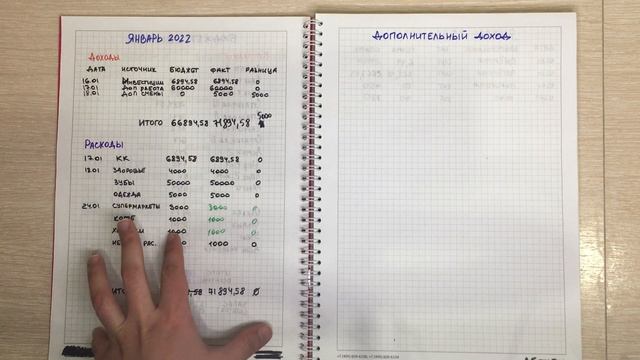 ЯНВАРЬ 2022
ДОХОДЫ
ДАТА ИСТОЧНИК БЮДЖЕТ ФАКТ РАЗНИЦА
16.01 ИНВЕСТИЦИИ 6894,58 6894,58 0
17.01 ДОП РАБОТА 60000 60000 0
18.01 ДОП СМЕНЫ 0 5000 5000
5000
ИТОГО 66894,58 71894,58
РАСХОДЫ
17.01 КК 6894,58 6894,58 0
18.01 ЗДОРОВЬЕ 4000 4000 0
ЗУБЫ 50000 50000 0
ОДЕЖДА 5000 5000 0
24.01 СУПЕРМАРКЕТЫ 3000 3000 0
КОФЕ 1000 1000 0
1000 1000 0
РАС. 1000 0
71894,58 0
ДОПОЛНИТЕЛЬНЫЙ ДОХОД